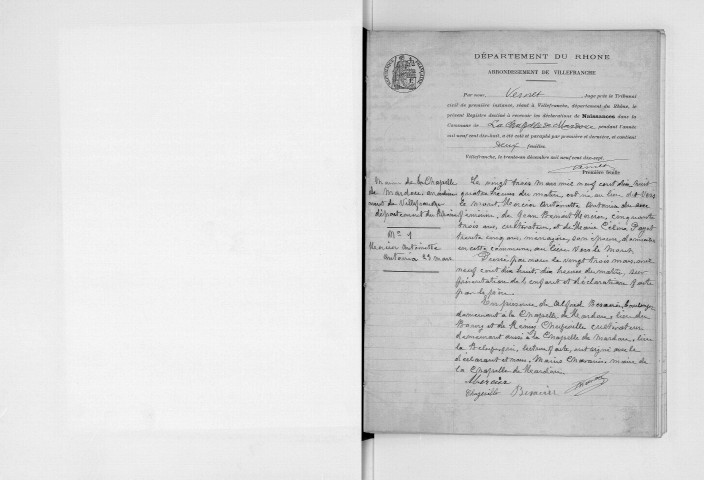 DÉPARTEMENT DU RHONE
ARRONDISSEMENT DE VILLEFRANCHE
Par nous, Vernet Juge près le Tribunal
civil de première instance, séant à Villefranche, département du Rhône, le
présent Registre destiné à recevoir les déclarations de Naissances dans la
Commune de La Chapelle de Mardore pendant l'année
mil neuf cent dix-huit, a été coté et paraphé par première et dernière, et contient
deux feuilles.
Villefranche, le trente-un décembre mil neuf cent dix-sept.
Première feuille
Mairie de la Chapelle
de Mardore, arrondisse
ment de Villefranche
département du Rhône
No 1
Mercier Antoinette
Antonia 23 mars
Le vingt trois mars mil neuf cent dix huit
quatre heures du matin est née au lieu dit Vers
le Mont, Mercier Antoinette Antonia du sexe
féminin, de Jean Benoit Mercier, cinquante
trois ans, cultivateur, et de Marie Célina Papot
trente cinq ans, ménagère, son épouse, domiciliés
en cette commune, au lieu Vers le Mont.
Dressé par nous le vingt trois mars, mil
neuf cent dix huit, dix heures du matin, sur
présentation de l'enfant et déclaration faite
par le père.
En présence de
demeurant à la Chapelle de Mardore, lieu du
Bourg et de Rémy cultivateur
demeurant aussi à la Chapelle de Mardore, lieu
lecture faite, ont signé avec le
déclarant et nous, maire de
la Chapelle de Mardore
Mercier